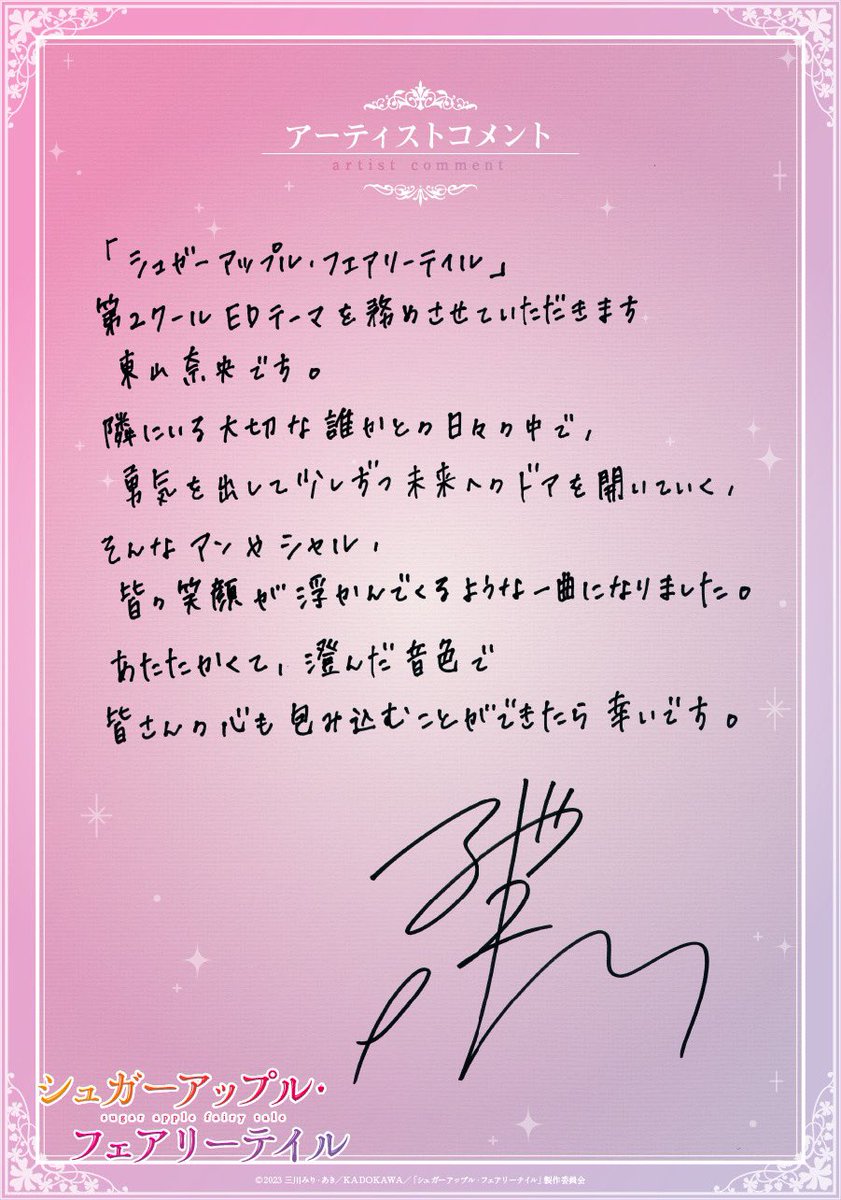 アーティストコメント
artist comment
「シュガーアップル・フェアリーテイル」
第2クール EDテーマを務めさせていただきます
東山奈央です。
隣にいる大切な誰かとの日々の中で、
勇気を出して少しずつ未来へのドアを開いていく、
そんなアンやシャル、
皆の笑顔が浮かんでくるような一曲になりました。
あたたかくて、澄んだ音色で
皆さんの心も包み込むことができたら幸いです。
シュガーアップル・
sugar apple fairy tale
フェアリーテイル
©2023 三川みり・あき/KADOKAWA/「シュガーアップル・フェアリーテイル」製作委員会